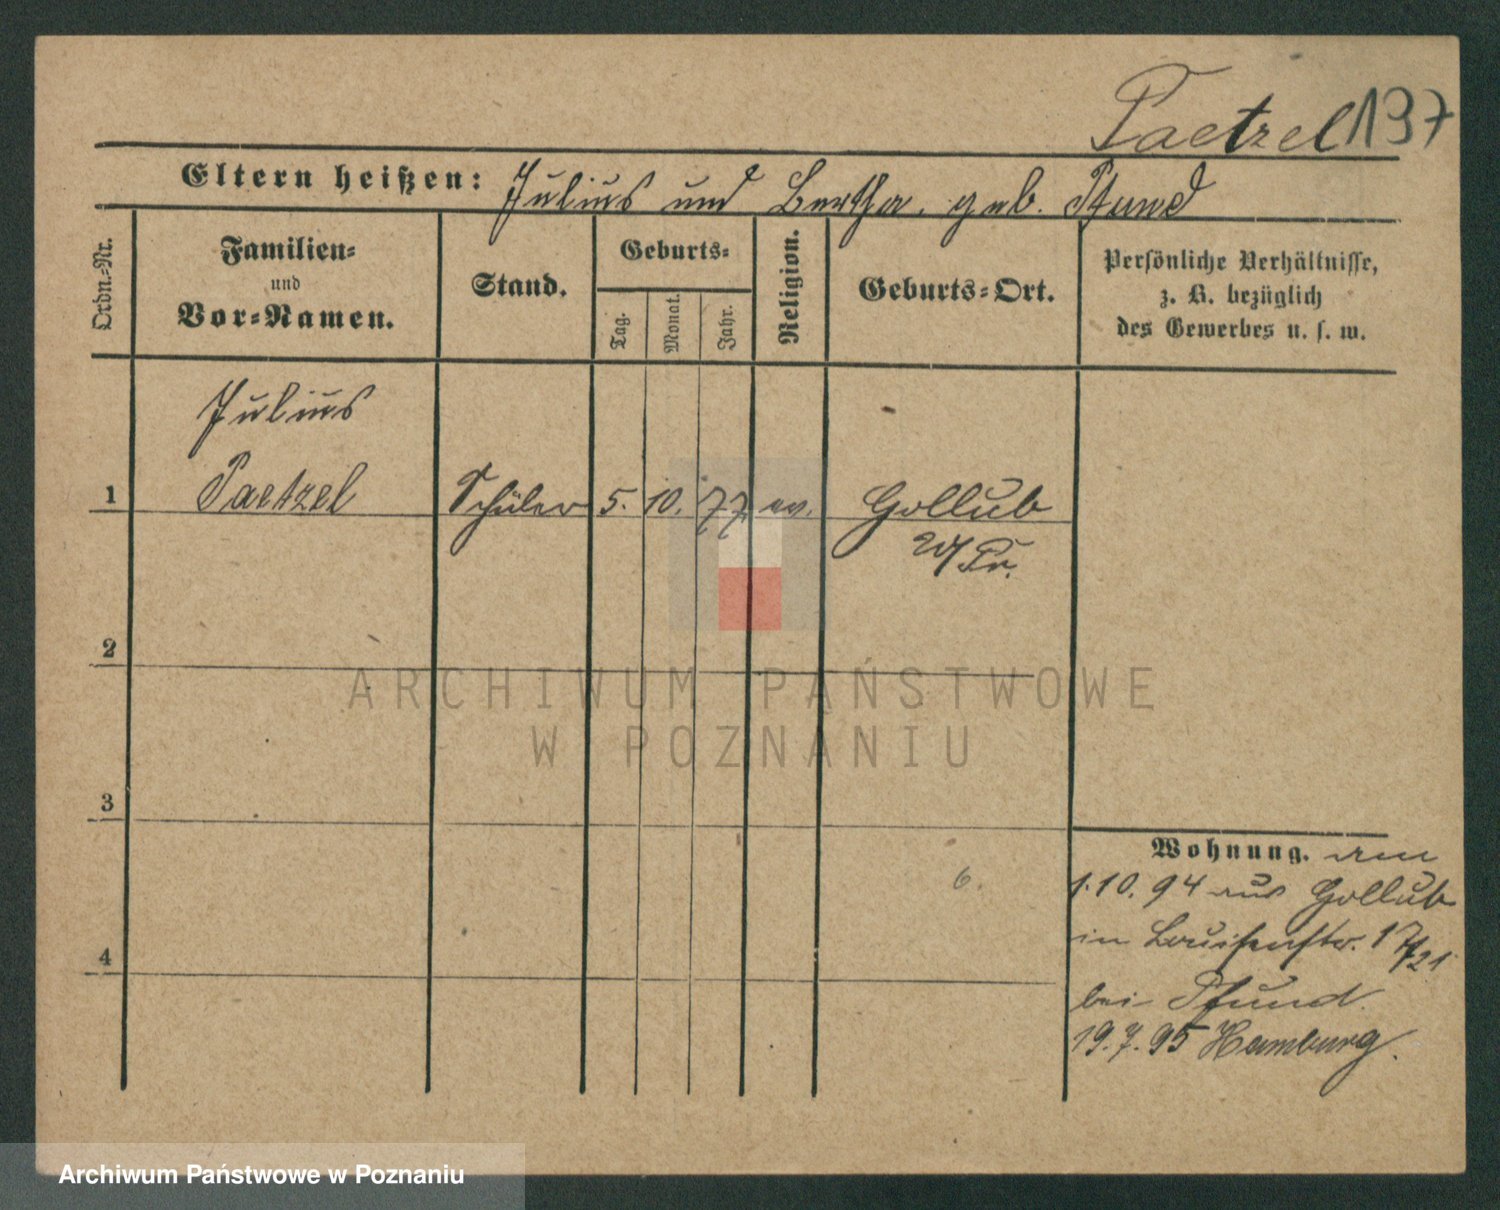 Paetzel 197
Eltern heißen: Julius und Bertha, geb. Pfund
Ordn.-Nr.
Familien-
und
Vor-Namen.
Stand.
Geburts-
Tag.
Monat.
Jahr.
Religion.
Geburts-Ort.
Persönliche Verhältnisse,
z. B. bezüglich
des Gewerbes u. s. w.
Julius
1 Paetzel Schüler 5. 10. 77 ev. Gollub
W/Pr.
2
ARCHIWUM PAŃSTWOWE
W POZNANIU
3
Wohnung. am
6.
1.10.94 aus Gollub
in Louisenstr. 17/21
4
bei Pfund.
19.7.95 Hamburg.
Archiwum Państwowe w Poznaniu